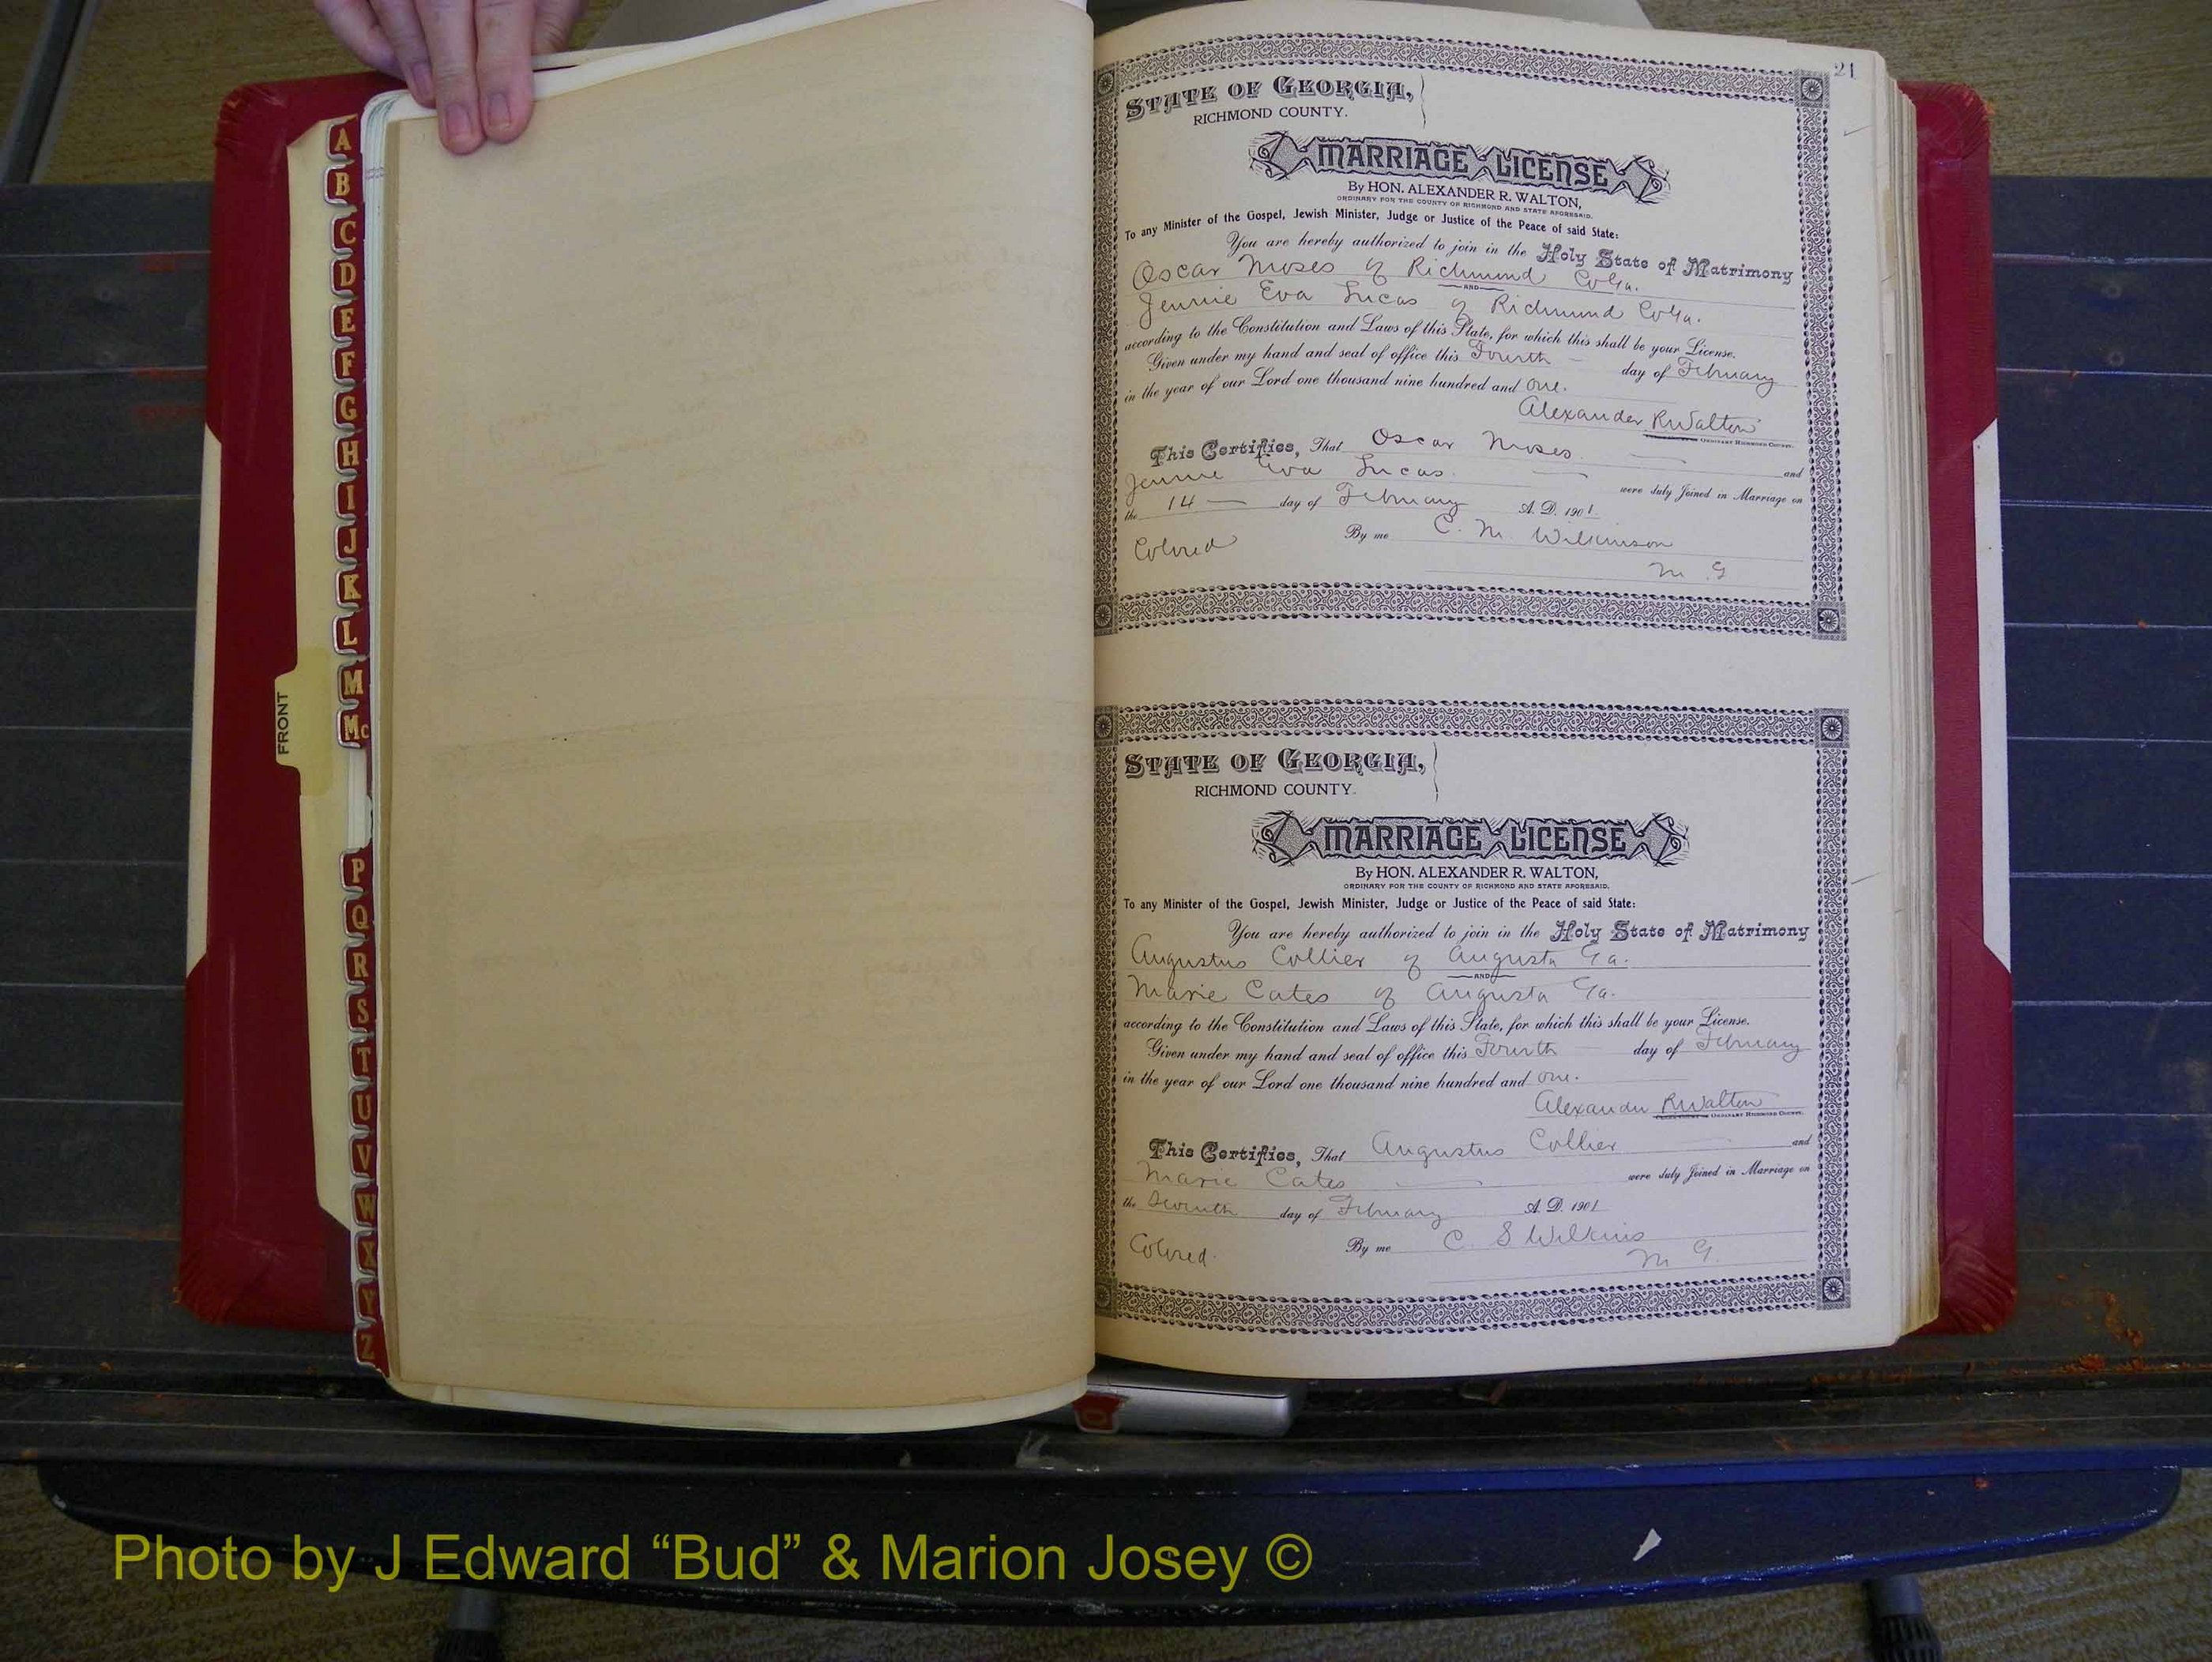 A
B
C
D
E
F
G
H
I
J
K
L
M
Mc
P
Q
R
S
T
U
V
W
X
Y
Z
FRONT
O
21
STATE OF GEORGIA,
RICHMOND COUNTY.
MARRIAGE LICENSE
By HON. ALEXANDER R. WALTON,
ORDINARY FOR THE COUNTY OF RICHMOND AND STATE AFORESAID.
To any Minister of the Gospel, Jewish Minister, Judge or Justice of the Peace of said State:
You are hereby authorized to join in the Holy State of Matrimony
Oscar Moses of Richmond Co Ga.
AND
Jennie Eva Lucas of Richmond Co Ga.
according to the Constitution and Laws of this State, for which this shall be your License.
Given under my hand and seal of office this Fourth day of February
in the year of our Lord one thousand nine hundred and one.
Alexander R Walton
ORDINARY RICHMOND COUNTY.
This Certifies, That Oscar Moses and
Jennie Eva Lucas were duly Joined in Marriage on
the 14 day of February A. D. 1901.
Colored By me C. M. Wilkinson
M G
STATE OF GEORGIA,
RICHMOND COUNTY.
MARRIAGE LICENSE
By HON. ALEXANDER R. WALTON,
ORDINARY FOR THE COUNTY OF RICHMOND AND STATE AFORESAID.
To any Minister of the Gospel, Jewish Minister, Judge or Justice of the Peace of said State:
You are hereby authorized to join in the Holy State of Matrimony
Augustus Collier of Augusta Ga.
AND
Marie Cates of Augusta Ga.
according to the Constitution and Laws of this State, for which this shall be your License.
Given under my hand and seal of office this Fourth day of February
in the year of our Lord one thousand nine hundred and one.
Alexander R Walton
ORDINARY RICHMOND COUNTY.
This Certifies, That Augustus Collier and
Marie Cates were duly Joined in Marriage on
the Seventh day of February A. D. 1901
Colored. By me C. S Wilkins
M G.
Photo by J Edward “Bud” & Marion Josey ©